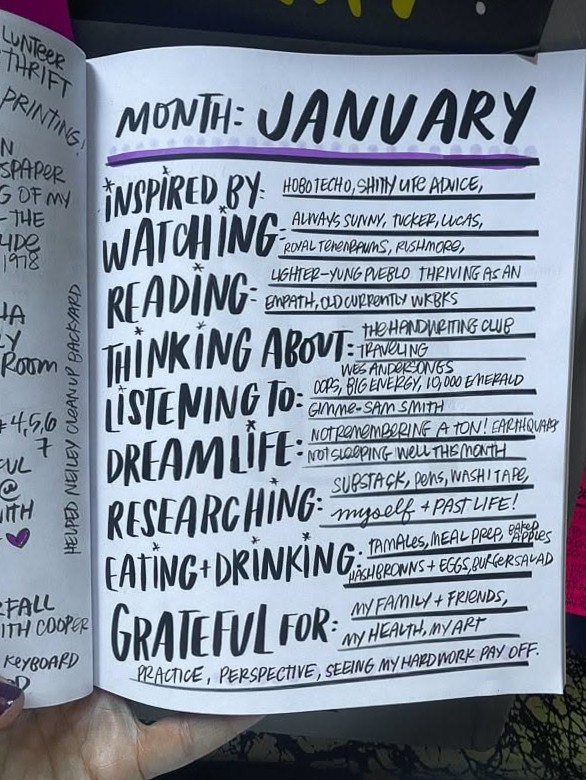 LUNTEER
THRIFT
PRINTING!
N
SPAPER
G OF MY
-THE
1978
HA
LY
ROOM
#4,5,6
7
FUL
@
ITH
FALL
ITH COOPER
KEYBOARD
HELPED NEILEY CLEAN UP BACKYARD
MONTH: JANUARY
INSPIRED BY: HOBOTECHO, SHITTY LIFE ADVICE,
WATCHING: ALWAYS SUNNY, TUCKER, LUCAS,
ROYAL TENENBAUMS, RUSHMORE,
READING: LIGHTER-YUNG PUEBLO THRIVING AS AN
EMPATH, OLD CURRENTLY WKBKS
THINKING ABOUT: THE HANDWRITING CLUB
TRAVELING
WES ANDERSONGS
LISTENING TO: OOPS, BIG ENERGY, 10,000 EMERALD
GIMME-SAM SMITH
DREAM LIFE: NOT REMEMBERING A TON! EARTHQUAKE
NOT SLEEPING WELL THIS MONTH
RESEARCHING: SUBSTACK, PENS, WASHI TAPE,
myself + PAST LIFE!
EATING + DRINKING: TAMALES, MEAL PREP, BAKED APPLES
HASHBROWNS + EGGS, BURGER SALAD
GRATEFUL FOR: MY FAMILY + FRIENDS,
MY HEALTH, MY ART
PRACTICE, PERSPECTIVE, SEEING MY HARD WORK PAY OFF.